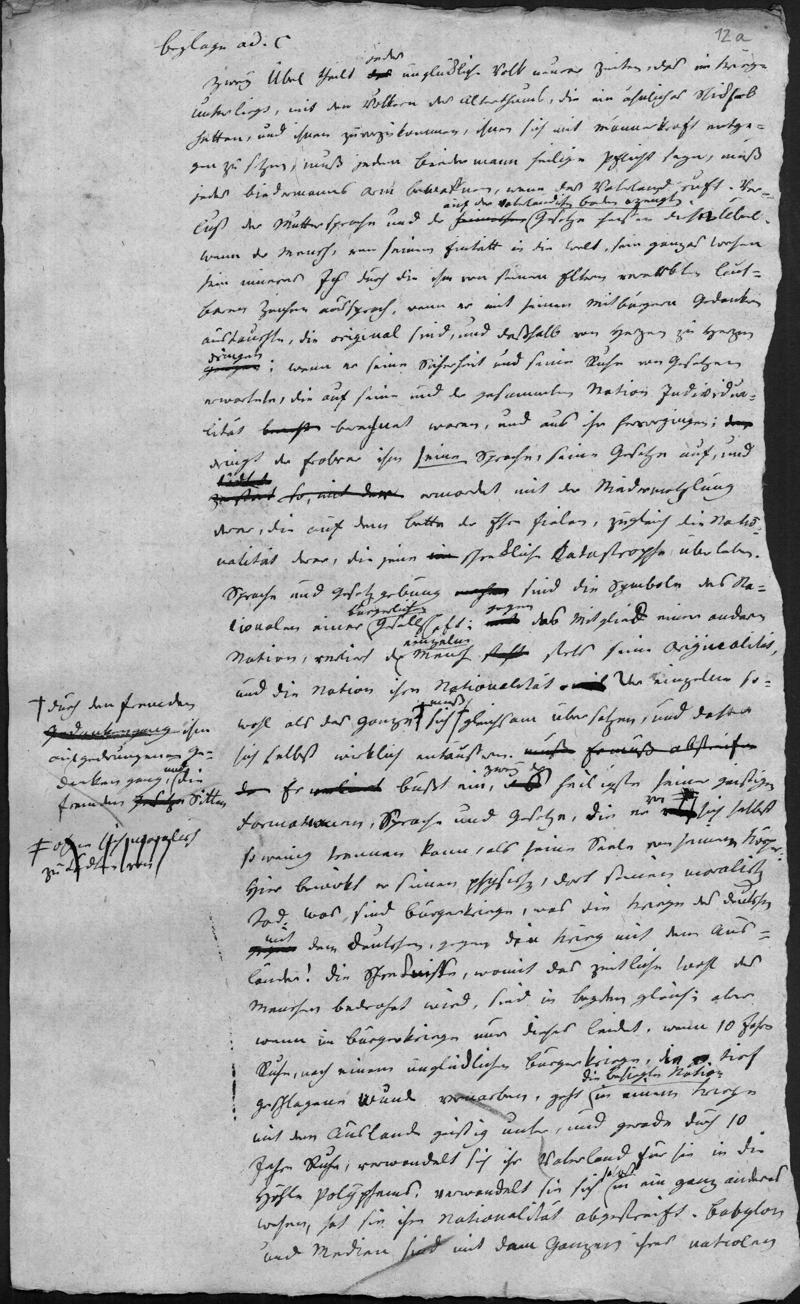 12a
beylage ad. C
jedes
Zwey Übel theilt das unglückliche Volk neuerer Zeiten, das im Kriege
unterliegt, mit den Völkern des Alterthums, die ein ähnliches Schicksal
hatten, und ihnen zuvorzukommen, ihnen sich mit Männerkraft entge-
gen zu setzen, muß jedem biedermann heilige Pflicht seyn, muß
jedes biedermanns Arm bewaffnen, wenn das Vaterland ruft. Ver-
auf der vaterländischen boden erzeugten
lust der Muttersprache und der Gesetze heißen diese Übel.
wenn der Mensch, von seinem Eintritt in die Welt, sein ganzes Wesen
sein inneres Ich durch die ihm von seinen Eltern vererbten laut-
baren Zeichen aussprach, wenn er mit seinen Mitbürgern Gedanken
austauschte, die original sind, und deßhalb von Herzen zu Herzen
dringen
; wenn er seine Sicherheit und seine Ruhe von Gesetzen
erwartete, die auf seine und der gesammten Nation Individua-
lität berechnet waren, und aus ihr hervorgingen;
dringt der Erober ihm seine Sprache, seine Gesetze auf, und
ermordet mit der Niedermetzlung
derer, die auf dem bette der Ehre fielen, zugleich die Natio-
nalität derer, die jene schreckliche Katastrophe überleben.
Sprache und Gesetzgebung sind die Symbole des Na-
bürgerlichen gegen
tionalen einer Gesellschaft; das Mitglied einer andern
einzelne
Nation, verliert der Mensch stets seine Originalität,
und die Nation ihre Nationalität. Der einzelne so-
muß
wohl als das ganze † sich ‡ gleichsam übersetzen, und daher
sich selbst wirklich entäussern. muß er muß abstreifen
zwey der
Er büßt ein, heiligste seiner geistigen
von
Formationen, Sprache und Gesetze, die er sich selbst
so wenig trennen kann, als seine Seele von seinem Körper.
Hier bewirkt er seinen physischen, dort seinen moralischen
Tod. was sind bürgerkriege, was die Kriege des deutschen
mit
dem Deutschen, gegen den Krieg mit dem Aus-
lande! die Schrecknisse, womit das zeitliche Wohl des
Menschen bedrohet wird, sind in beyden gleich; aber
wenn im bürgerkriege nur dieses leidet, wenn 10 Jahre
Ruhe, nach einem unglücklichen bürgerkriege, die tief
die besiegte Nation
geschlagene Wunde vernarben, geht in einem Kriege
mit dem Auslande geistig unter, und gerade durch 10
Jahre Ruhe, verwandelt sich ihr Vaterland für sie in die
Höhle Polyphems; verwandelt sie sich selbst in ein ganz anderes
wesen, hat sie ihre Nationalität abgestreift. Babylon
und Medien sind mit dem Ganzen ihres nationalen
† durch den fremden
Gedankengang ihm
aufgedrungenen Ge-
dankengang, und die
fremden Gesetze Sitten
‡